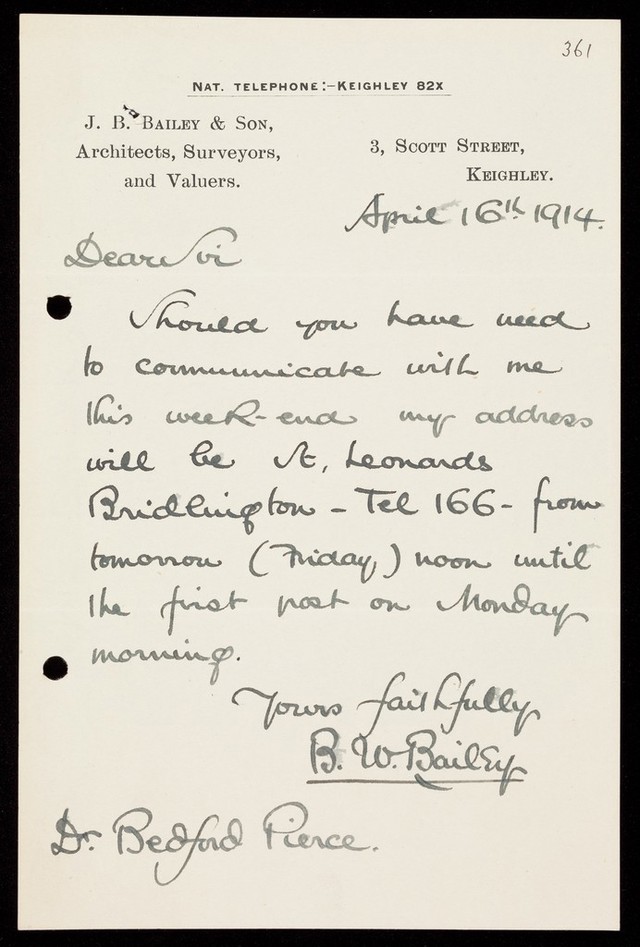 361
NAT. TELEPHONE:-KEIGHLEY 82X
J. B. BAILEY & SON,
Architects, Surveyors,
and Valuers.
3, SCOTT STREET,
KEIGHLEY.
April 16th 1914.
Dear Sir
Should you have need
to communicate with me
this week-end my address
will be St. Leonards
Bridlington - Tel 166 - from
tomorrow (Friday) noon until
the first post on Monday
morning.
Yours faithfully
B. W. Bailey
Dr. Bedford Pierce.